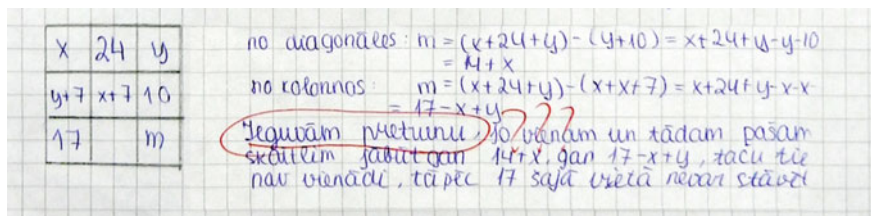 x 24 y
y+7 x+7 10
17 m
no diagonāles: m = (x+24+y) - (y+10) = x+24+y-y-10
= 14+x
no kolonnas: m = (x+24+y)-(x+x+7) = x+24+y-x-x
= 17-x+y
Ieguvām pretrunu, jo vienam un tādam pašam
skaitlim jābūt gan 14+x, gan 17-x+y, taču tie
nav vienādi, tāpēc 17 šajā vietā nevar stāvēt
???